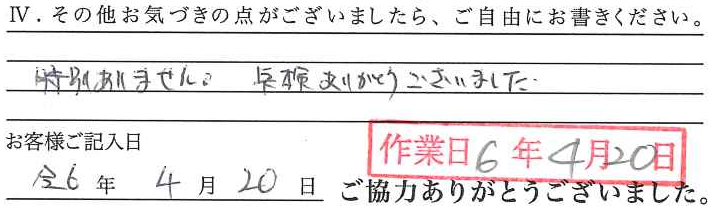 Ⅳ．その他お気づきの点がございましたら、ご自由にお書きください。
特別ありません。 点検ありがとうございました.
お客様ご記入日
作業日6年4月20日
令6年 4月20日 ご協力ありがとうございました。